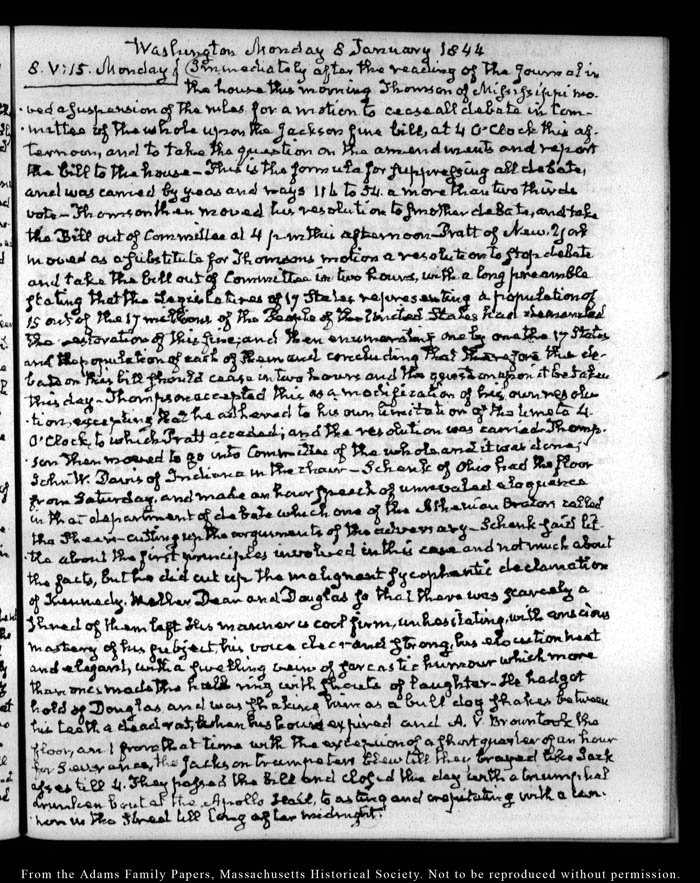 Washington Monday 8 January 1844
8. V:15. Monday. Immediately after the reading of the Journal in
the house this morning Thomson of Mississippi mo-
ved a suspension of the rules for a motion to cease all debate in Com-
mittee of the whole upon the Jackson fine bill, at 4 O'Clock this af-
ternoon, and to take the question on the amendments and report
the bill to the house— This is the formula for suppressing all debate,
and was carried by yeas and nays 116 to 54. a more than two thirds
vote— Thomson then moved his resolution to smother debate, and take
the Bill out of Committee at 4 p.m. this afternoon— Pratt of New-York
moved as a substitute for Thomsons motion a resolution to stop debate
and take the bill out of Committee in two hours, with a long preamble
stating that the Legislatures of 17 States representing a population of
15 out of the 17 millions of the People of the United States had demanded
the restoration of this fine; and then enumerating one by one the 17 States
and the population of each of them and concluding that therefore the de-
bate on this bill should cease in two hours and the question upon it be taken
this day— Thompson accepted this as a modification of his own resolu-
tion, excepting that he adhered to his own limitation of the time to 4
O'Clock, to which Pratt acceded; and the resolution was carried. Thomp-
son then moved to go into Committee of the whole and it was done;
John W. Davis of Indiana in the chair— Schenk of Ohio had the floor
from Saturday, and made an hour speech of unrivaled eloquence
in that department of debate which one of the Athenian Orators called
the Shears— cutting up the arguments of the adversary— Schenk said lit-
tle about the first principles involved in this case and not much about
the facts, but he did cut up the malignant sycophantic declamation
of Kennedy, Weller Dean and Douglas so that there was scarcely a
shred of them left His manner is cool firm, unhesitating, with conscious
mastery of his subject, his voice clear and strong, his elocution neat
and elegant, with a swelling vein of sarcastic humour which more
than once made the hall ring with shouts of laughter— He had got
hold of Douglas, and was shaking him as a bull dog shakes between
his teeth a dead rat, when his hour expired and A. V. Brown took the
floor, and from that time with the exception of a short quarter of an hour
for Severance, the Jackson trumpeters blew till they brayed like Jack
asses till 4. They passed the Bill and closed the day with a triumphal
drunken bout at the Apollo Hall, toasting and crepitating with a can-
non in the Street till long after midnight.
From the Adams Family Papers, Massachusetts Historical Society. Not to be reproduced without permission.